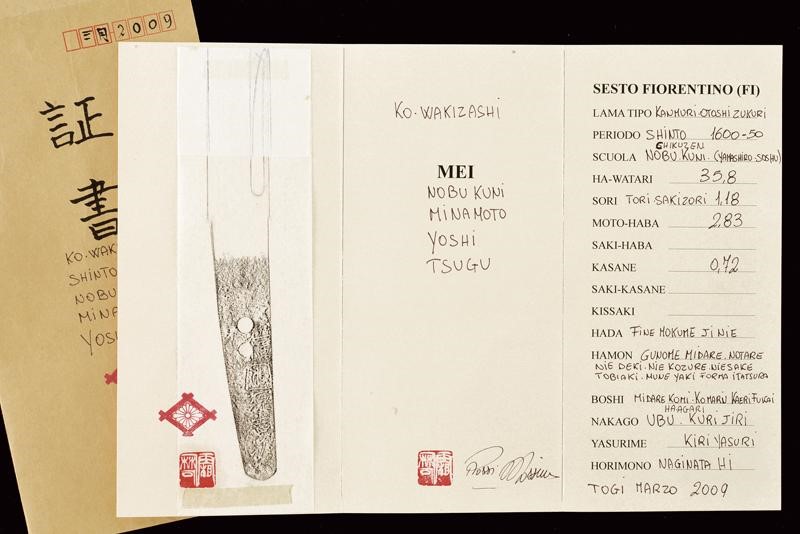 三月 2009
証
書
KO-WAK
SHINTO
NOBU
MINA
YOSH
KO-WAKIZASHI
MEI
NOBU KUNI
MINAMOTO
YOSHI
TSUGU
SESTO FIORENTINO (FI)
LAMA TIPO KANMURI-OTOSHI ZUKURI
PERIODO SHINTO 1600-50
CHIKUZEN
SCUOLA NOBU KUNI. (YAMASHIRO-SOSHU)
HA-WATARI 35,8
SORI TORI SAKIZORI 1,18
MOTO-HABA 2,83
SAKI-HABA
KASANE 0,72
SAKI-KASANE
KISSAKI
HADA FINE MOKUME JI NIE
HAMON GUNOME MIDARE. NOTARE
NIE DEKI. NIE KOZURE. NIESAKE
TOBIAKI. MUNE YAKI FORMA ITATSURA
BOSHI MIDARE KOMI. KOMARU KAERI FUKAI
HAAGARI
NAKAGO UBU. KURI JIRI
YASURIME KIRI YASURI
HORIMONO NAGINATA HI
TOGI MARZO 2009